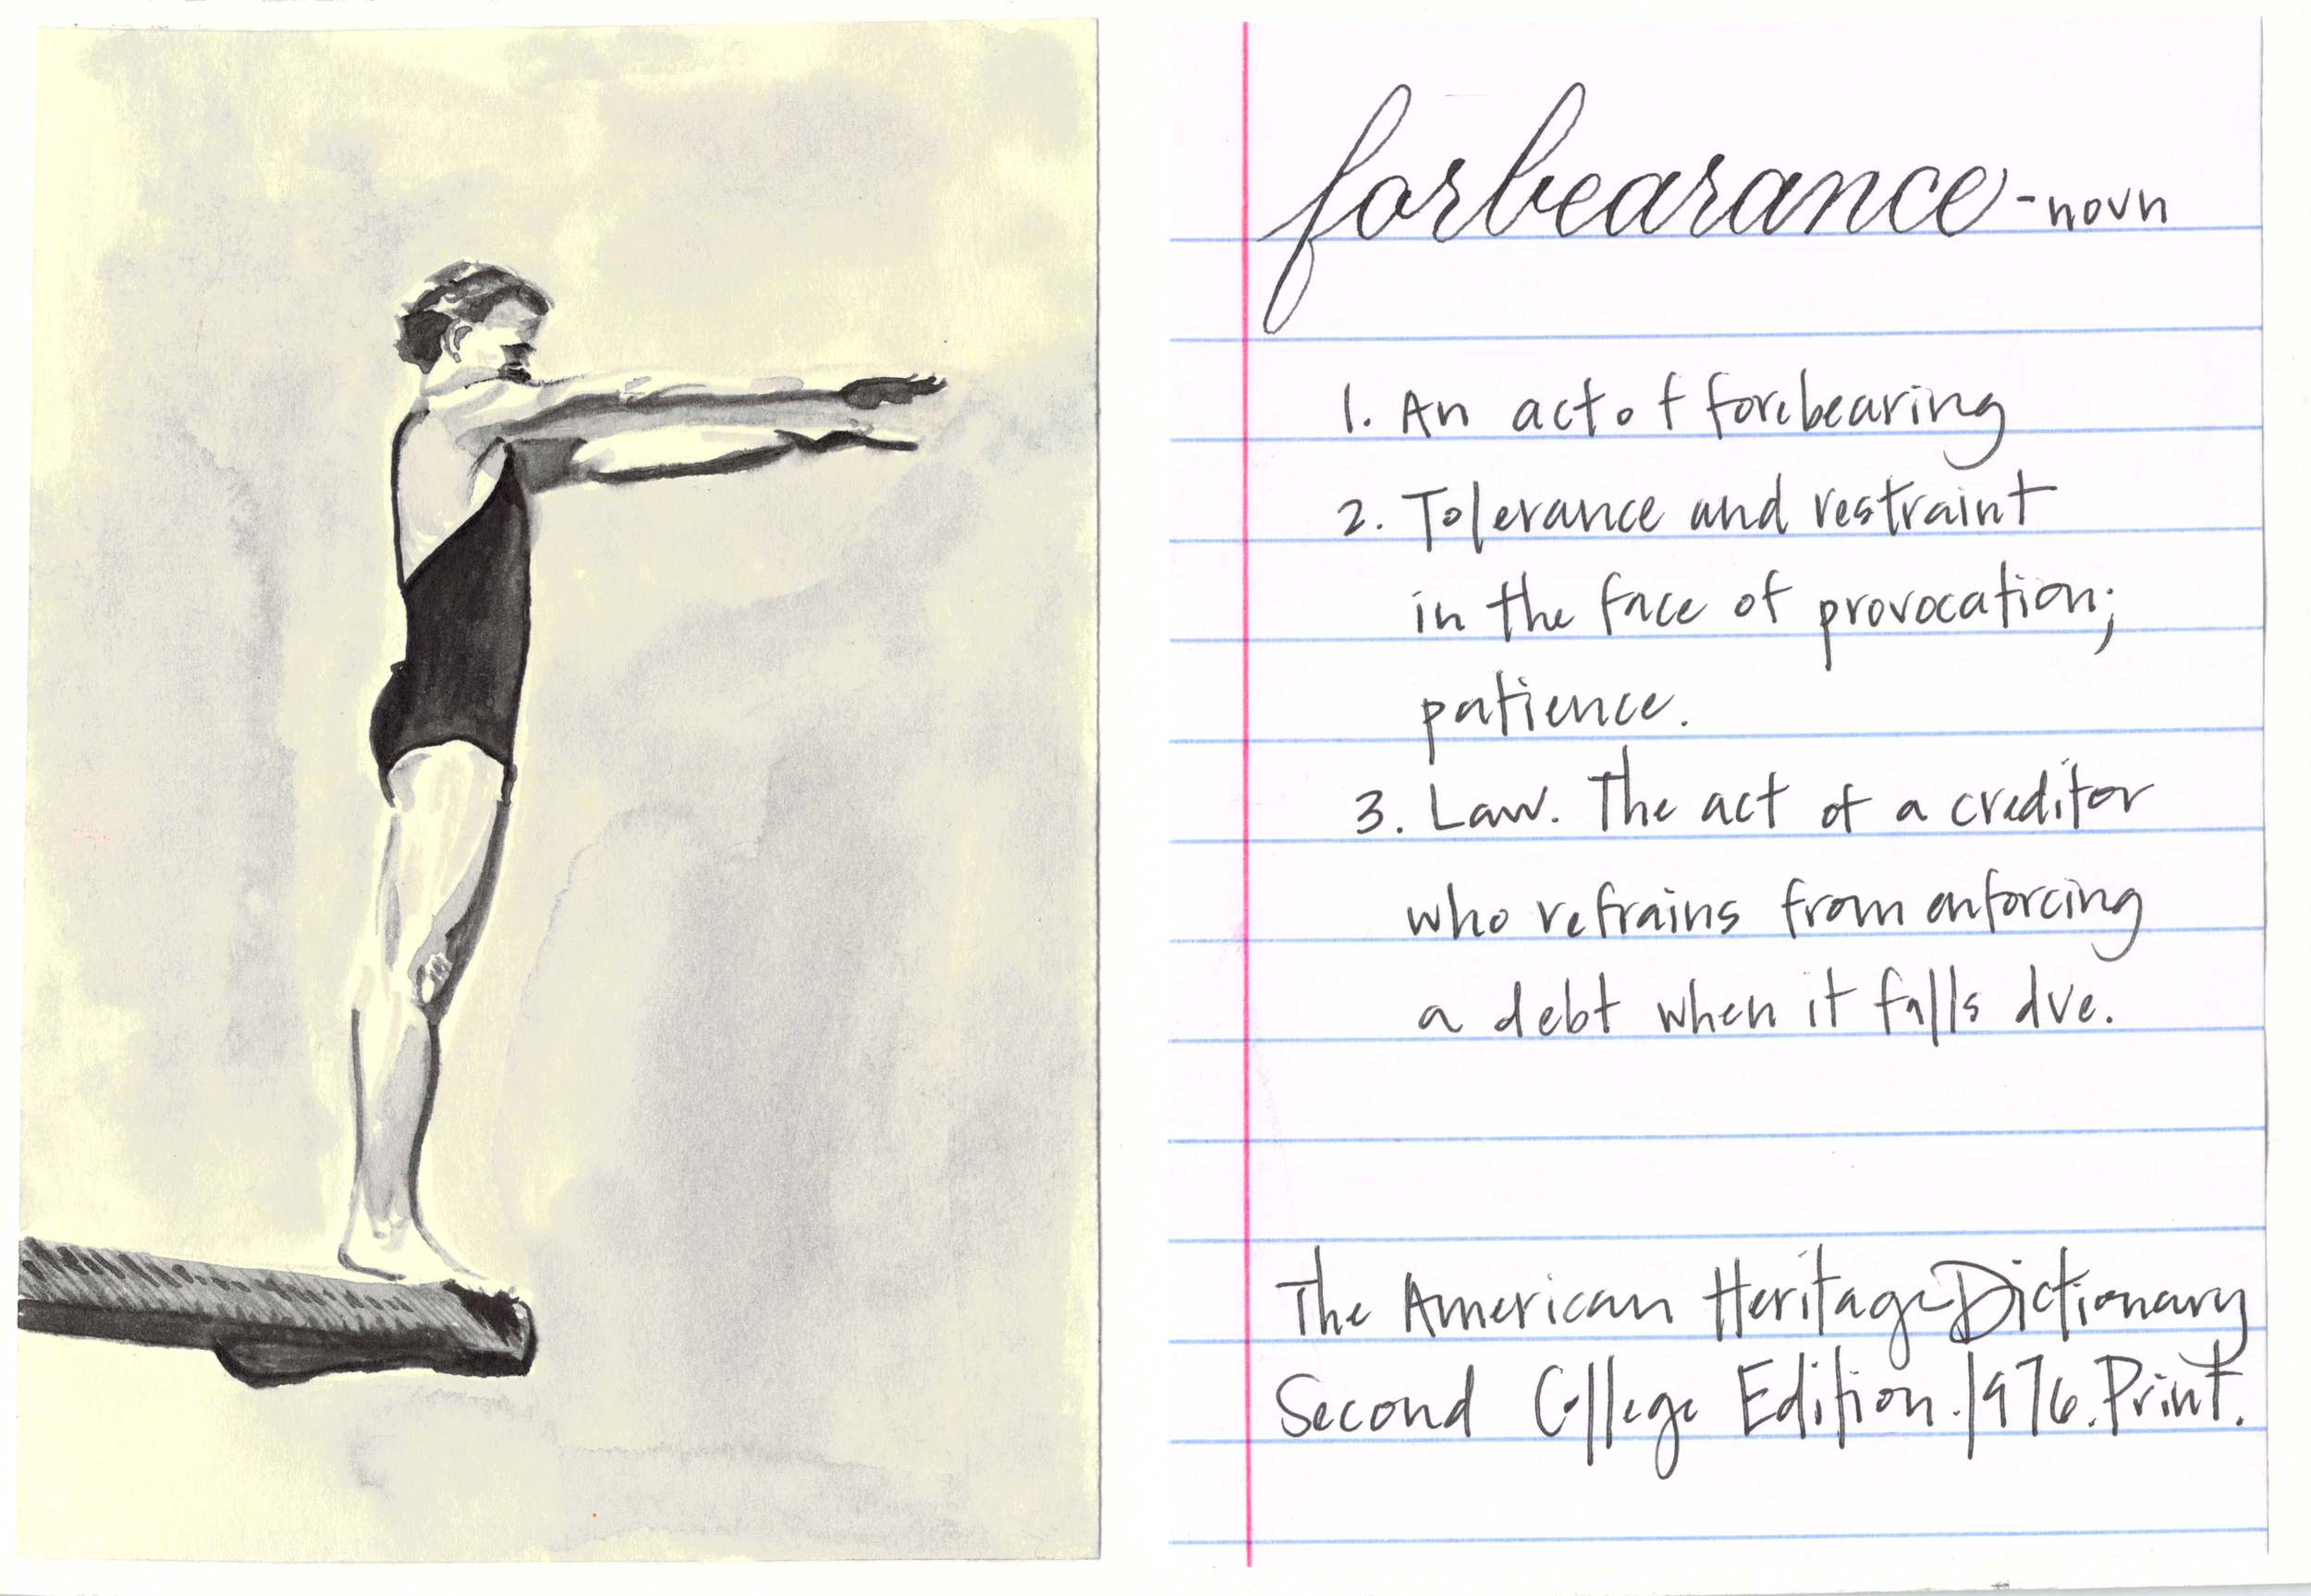 forbearance - noun
1. An act of forebearing
2. Tolerance and restraint
in the face of provocation;
patience.
3. Law. The act of a creditor
who refrains from enforcing
a debt when it falls due.
The American Heritage Dictionary
Second College Edition. 1976. Print.